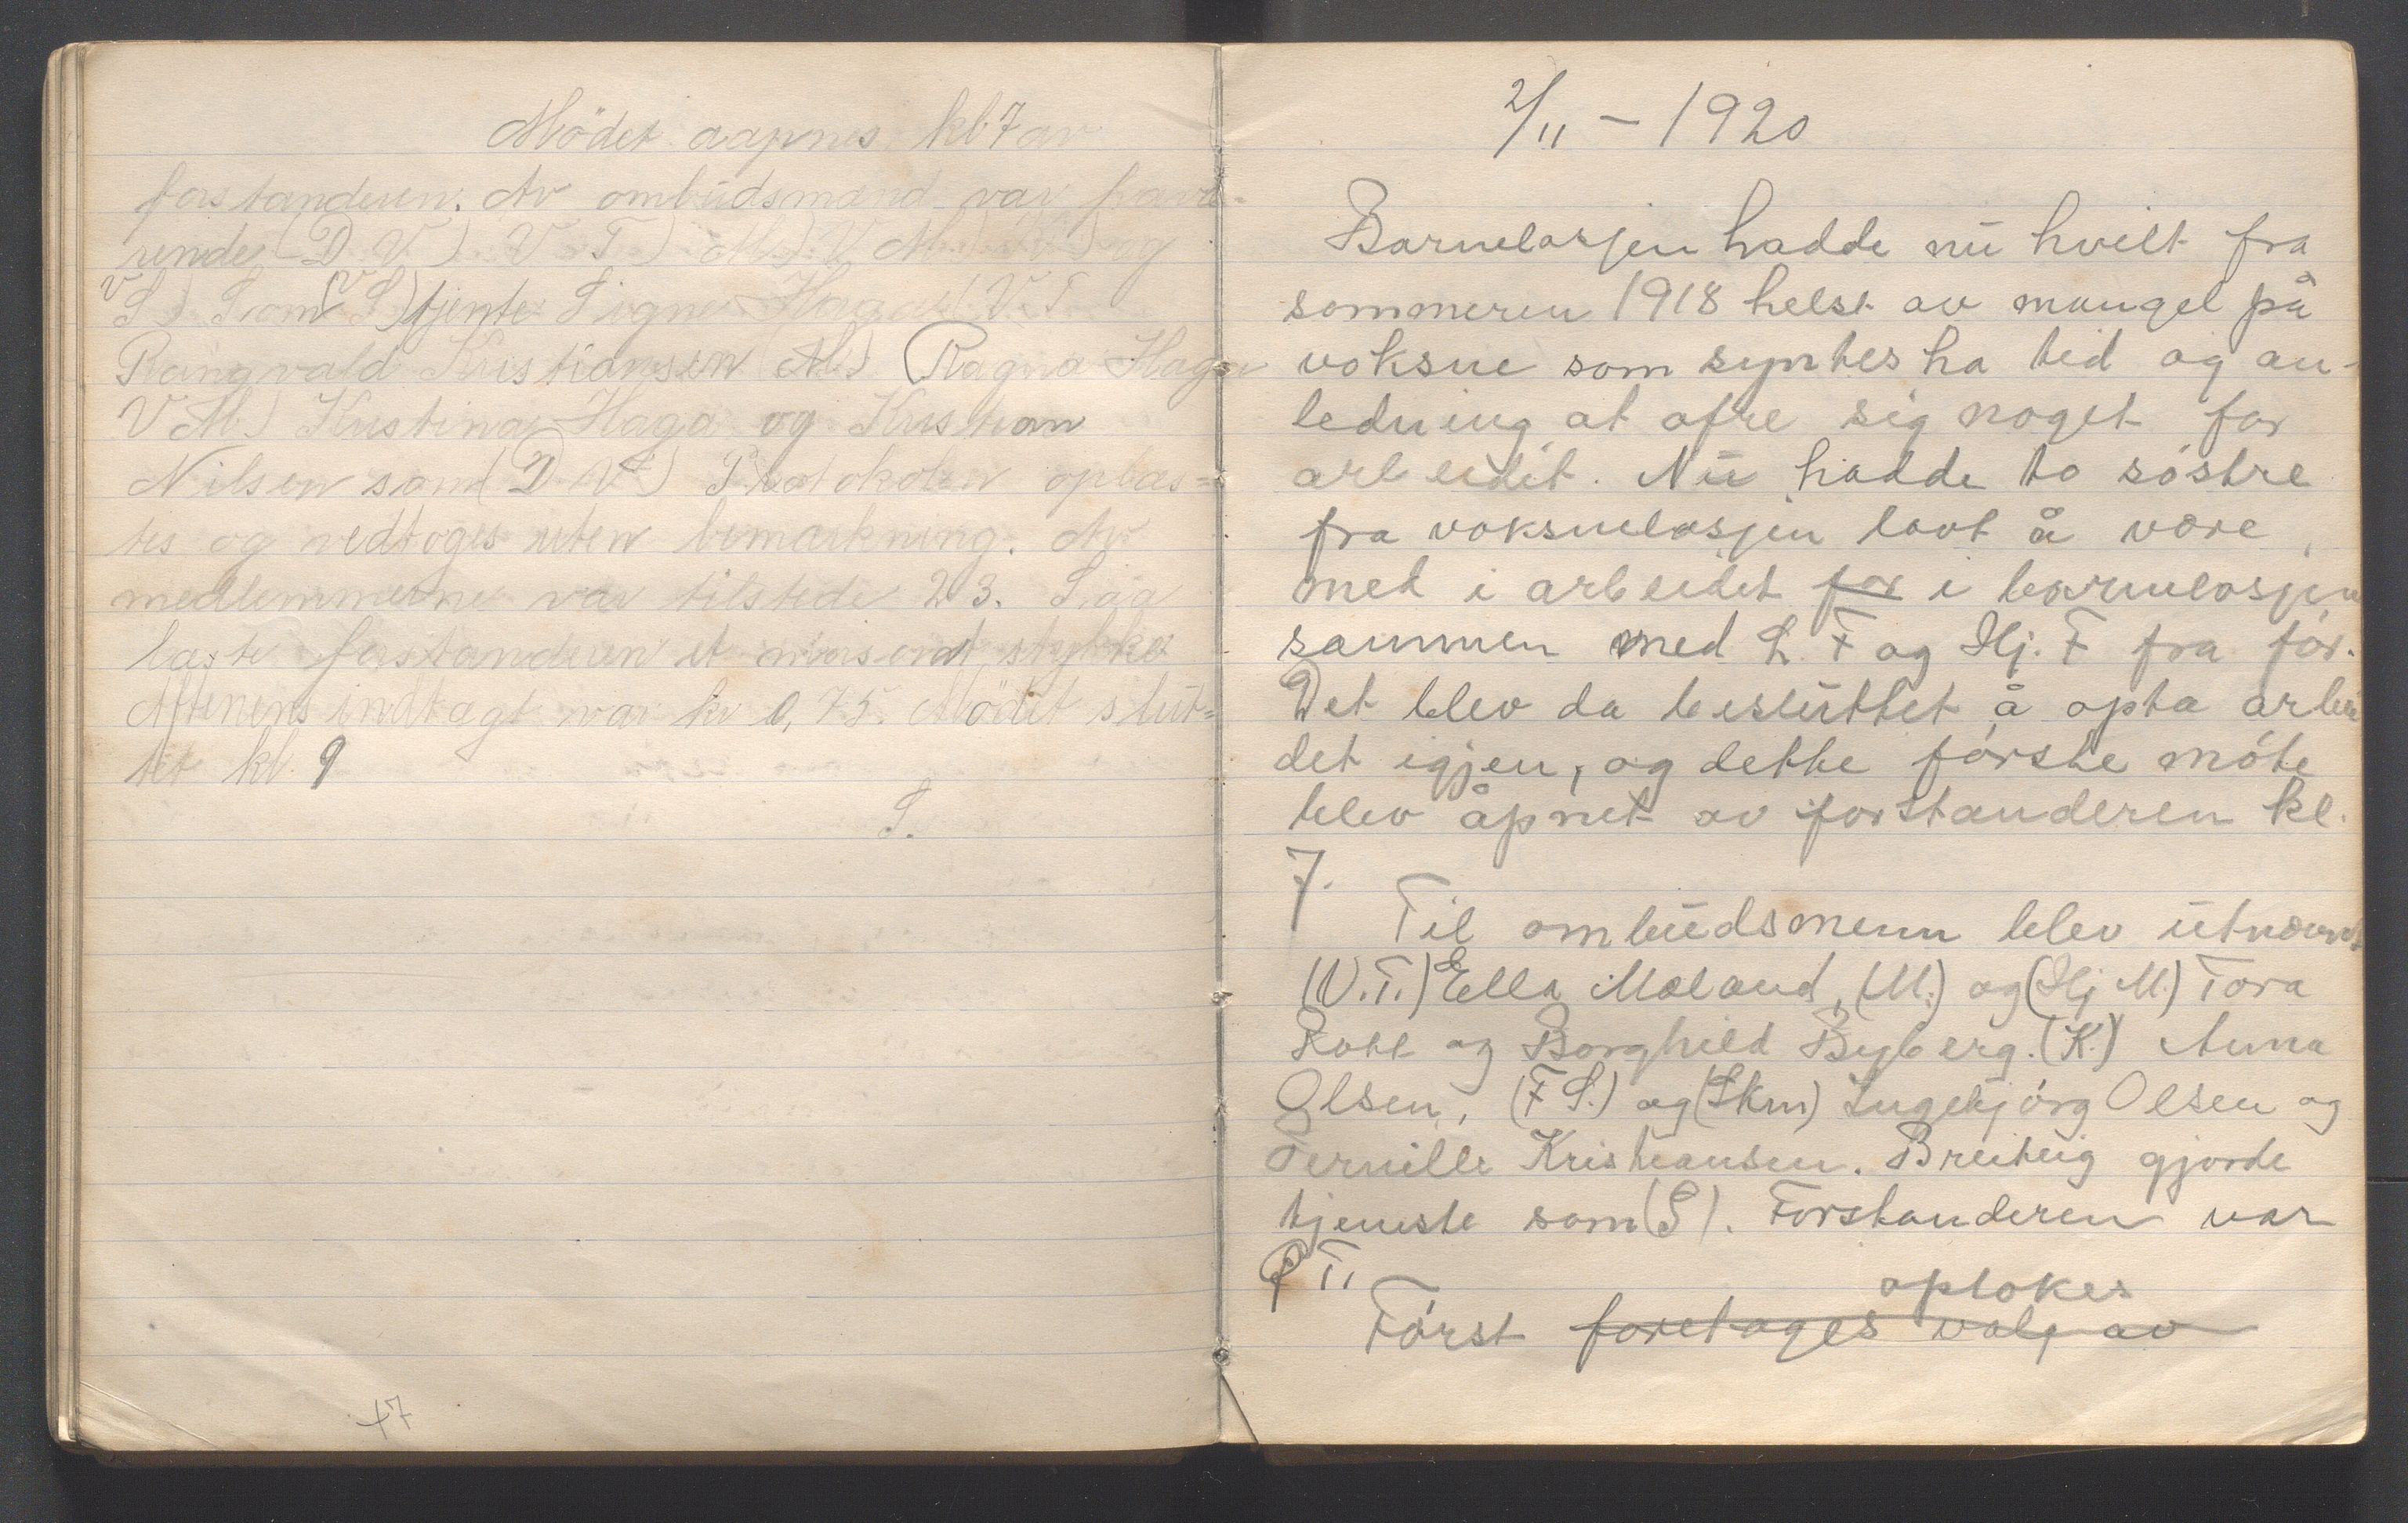 Mödet aapnes kl. 7 av
forstanderen. Av ombudsmænd var fravæ-
rende (D V) V T) M) V M)
V S) Som (V S) tjente Signe Haga (V. T
Rangvald Kristiansen M) (Ragna Haga
V M.) Kristina Haga og Kristian
Nilsen som (D. V.) Protokolen oplæs=
tes og vedtoges uten bemærkning. Av
medlemmerne var tilstede 23. Saa
læste forstanderen et morsomt stykke
Aftenens indtægt var kr 0,75. Mödet slut=
tet kl. 9
S.
47
2/11 – 1920
Barnelosjen hadde nu hvilt fra
sommeren 1918 helst av mangel på
voksne som syntes ha tid og an-
ledning at ofre sig noget for
arbeidet. Nu hadde to söstre
fra voksnelosjen lovt å være
med i arbeidet for i barnelosjen
sammen med L. F og Hj. F fra för.
Det blev da besluttet å opta arbei
det igjen, og dette förste möte
blev åpnet av forstanderen kl.
7.
Til ombudsmenn blev utnævnt
(V.T.) Ella Mæland, (M.) og (Hj M.) Tora
Rott og Borghild Byberg. (K.) Anna
Olsen, (F S.) og (Skm) Ingebjörg Olsen og
Pernille Kristiansen. Breiteig gjorde
tjeneste som (S). Forstanderen var
P T.
optokes
Först foretages valg av